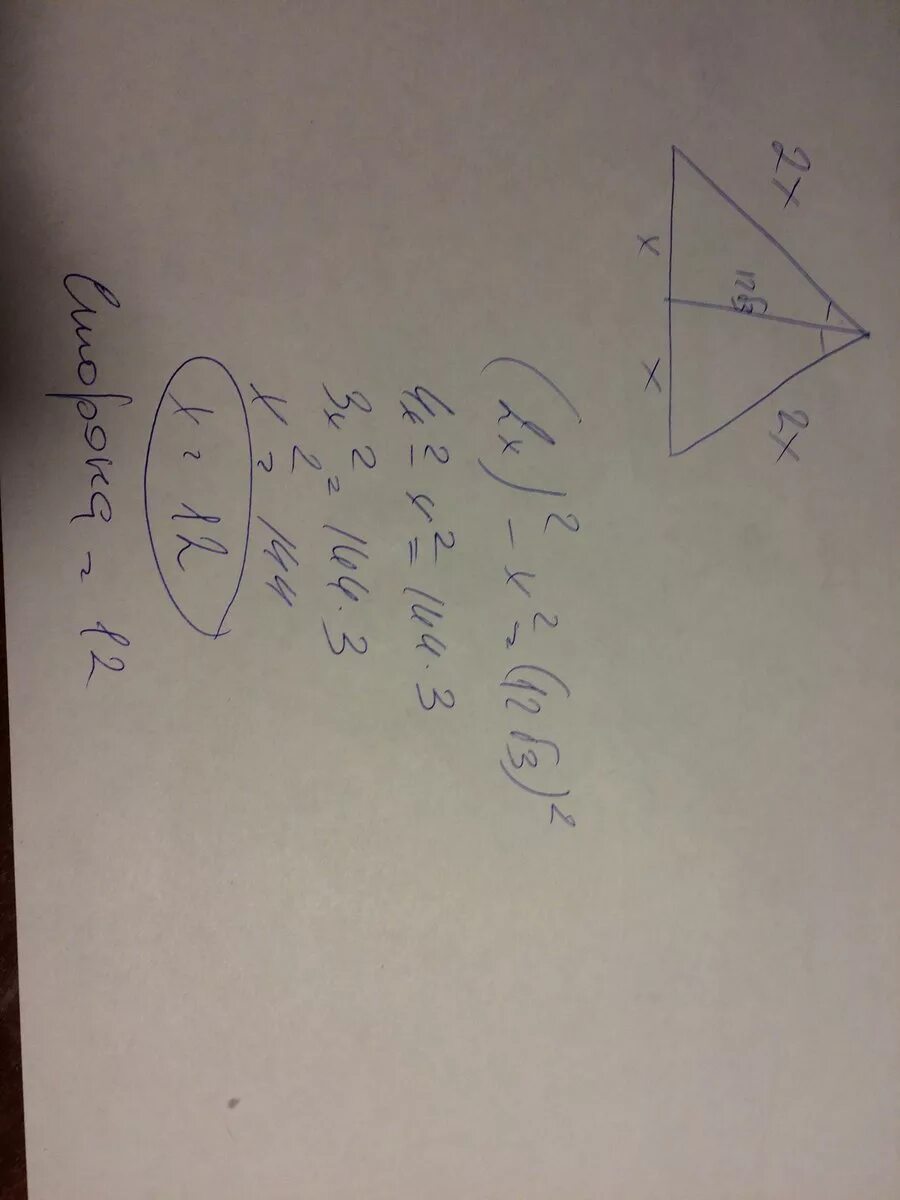 2x
2x
12√3
x
x
(2x)² - x² = (12√3)²
4x² - x² = 144·3
3x² = 144·3
x² = 144
x = 12
Сторона = 12